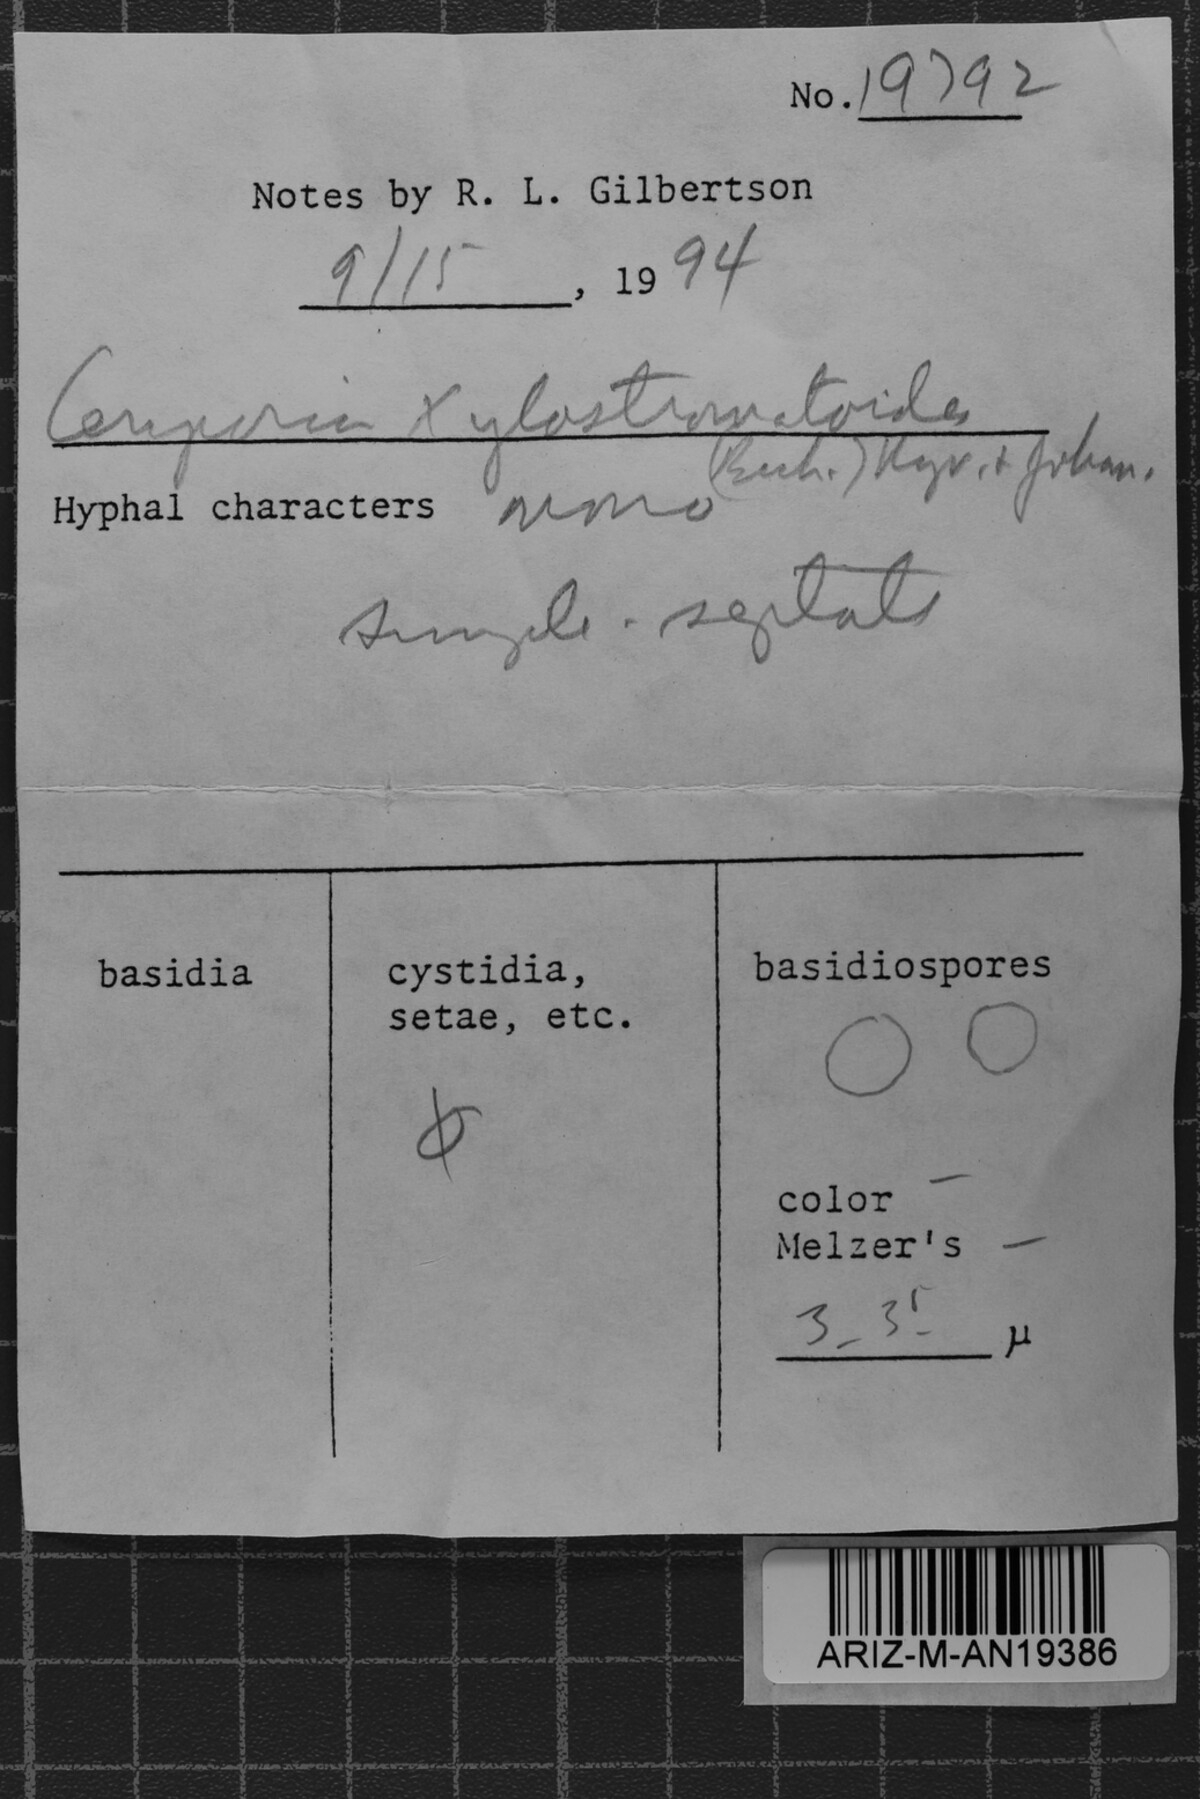 No. 19792
Notes by R. L. Gilbertson
9/15, 1994
Ceriporia xylostromatoides
(Berk.) Ryv. + Johan.
Hyphal characters mono
simple-septate
basidia
cystidia,
setae, etc.
φ
basidiospores
color –
Melzer's –
3-3.5 μ
ARIZ-M-AN19386